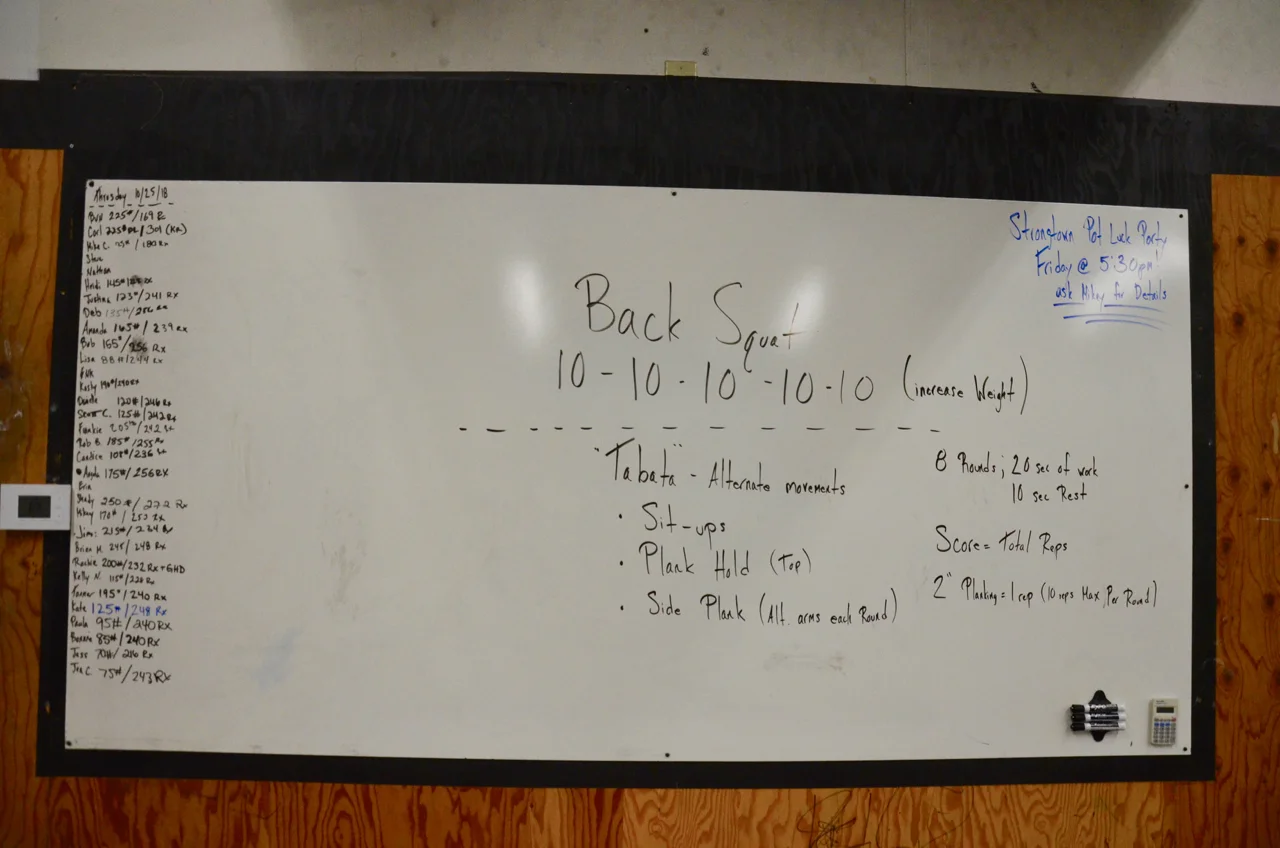 Thursday 10/25/18
225#/169 R
Carl 225# /301 (KR)
Mike C. /180 Rx
Steve
Nathan
Heidi 145#
Joshua 123#/241 Rx
Deb 135#/256 Rx
Amanda 165#/239 Rx
Bob 165#/256 Rx
Lisa 88#/244 Rx
Kathy 190#/240 Rx
120#/246 Rx
Scott C. 125#/242 Rx
Frankie 205#/242 Rx
Rob B. 185#/255 Rx
Candice 108#/236 Rx
Angela 175#/256 RX
Erin
Shady 250#/272 Rx
Mikey 170#/252 Rx
Jimi 215#/234 Rx
Brian M. 245/248 Rx
200#/232 Rx+GHD
Kelly N. 115#/220 Rx
Tanner 195#/240 Rx
Kate 125#/248 Rx
Paula 95#/240 Rx
Bonnie 85#/240 Rx
Jess 70#/256 Rx
Jen C 75#/243 Rx
Back Squat
10 - 10 - 10 - 10 - 10 (increase Weight)
"Tabata" - Alternate movements
· Sit-ups
· Plank Hold (Top)
· Side Plank (Alt. arms each Round)
8 Rounds; 20 sec of work
10 sec Rest
Score = Total Reps
2" Planking = 1 rep (10 reps Max, Per Round)
Strongtown Pot Luck Party
Friday @ 5:30pm!
ask Mikey for Details